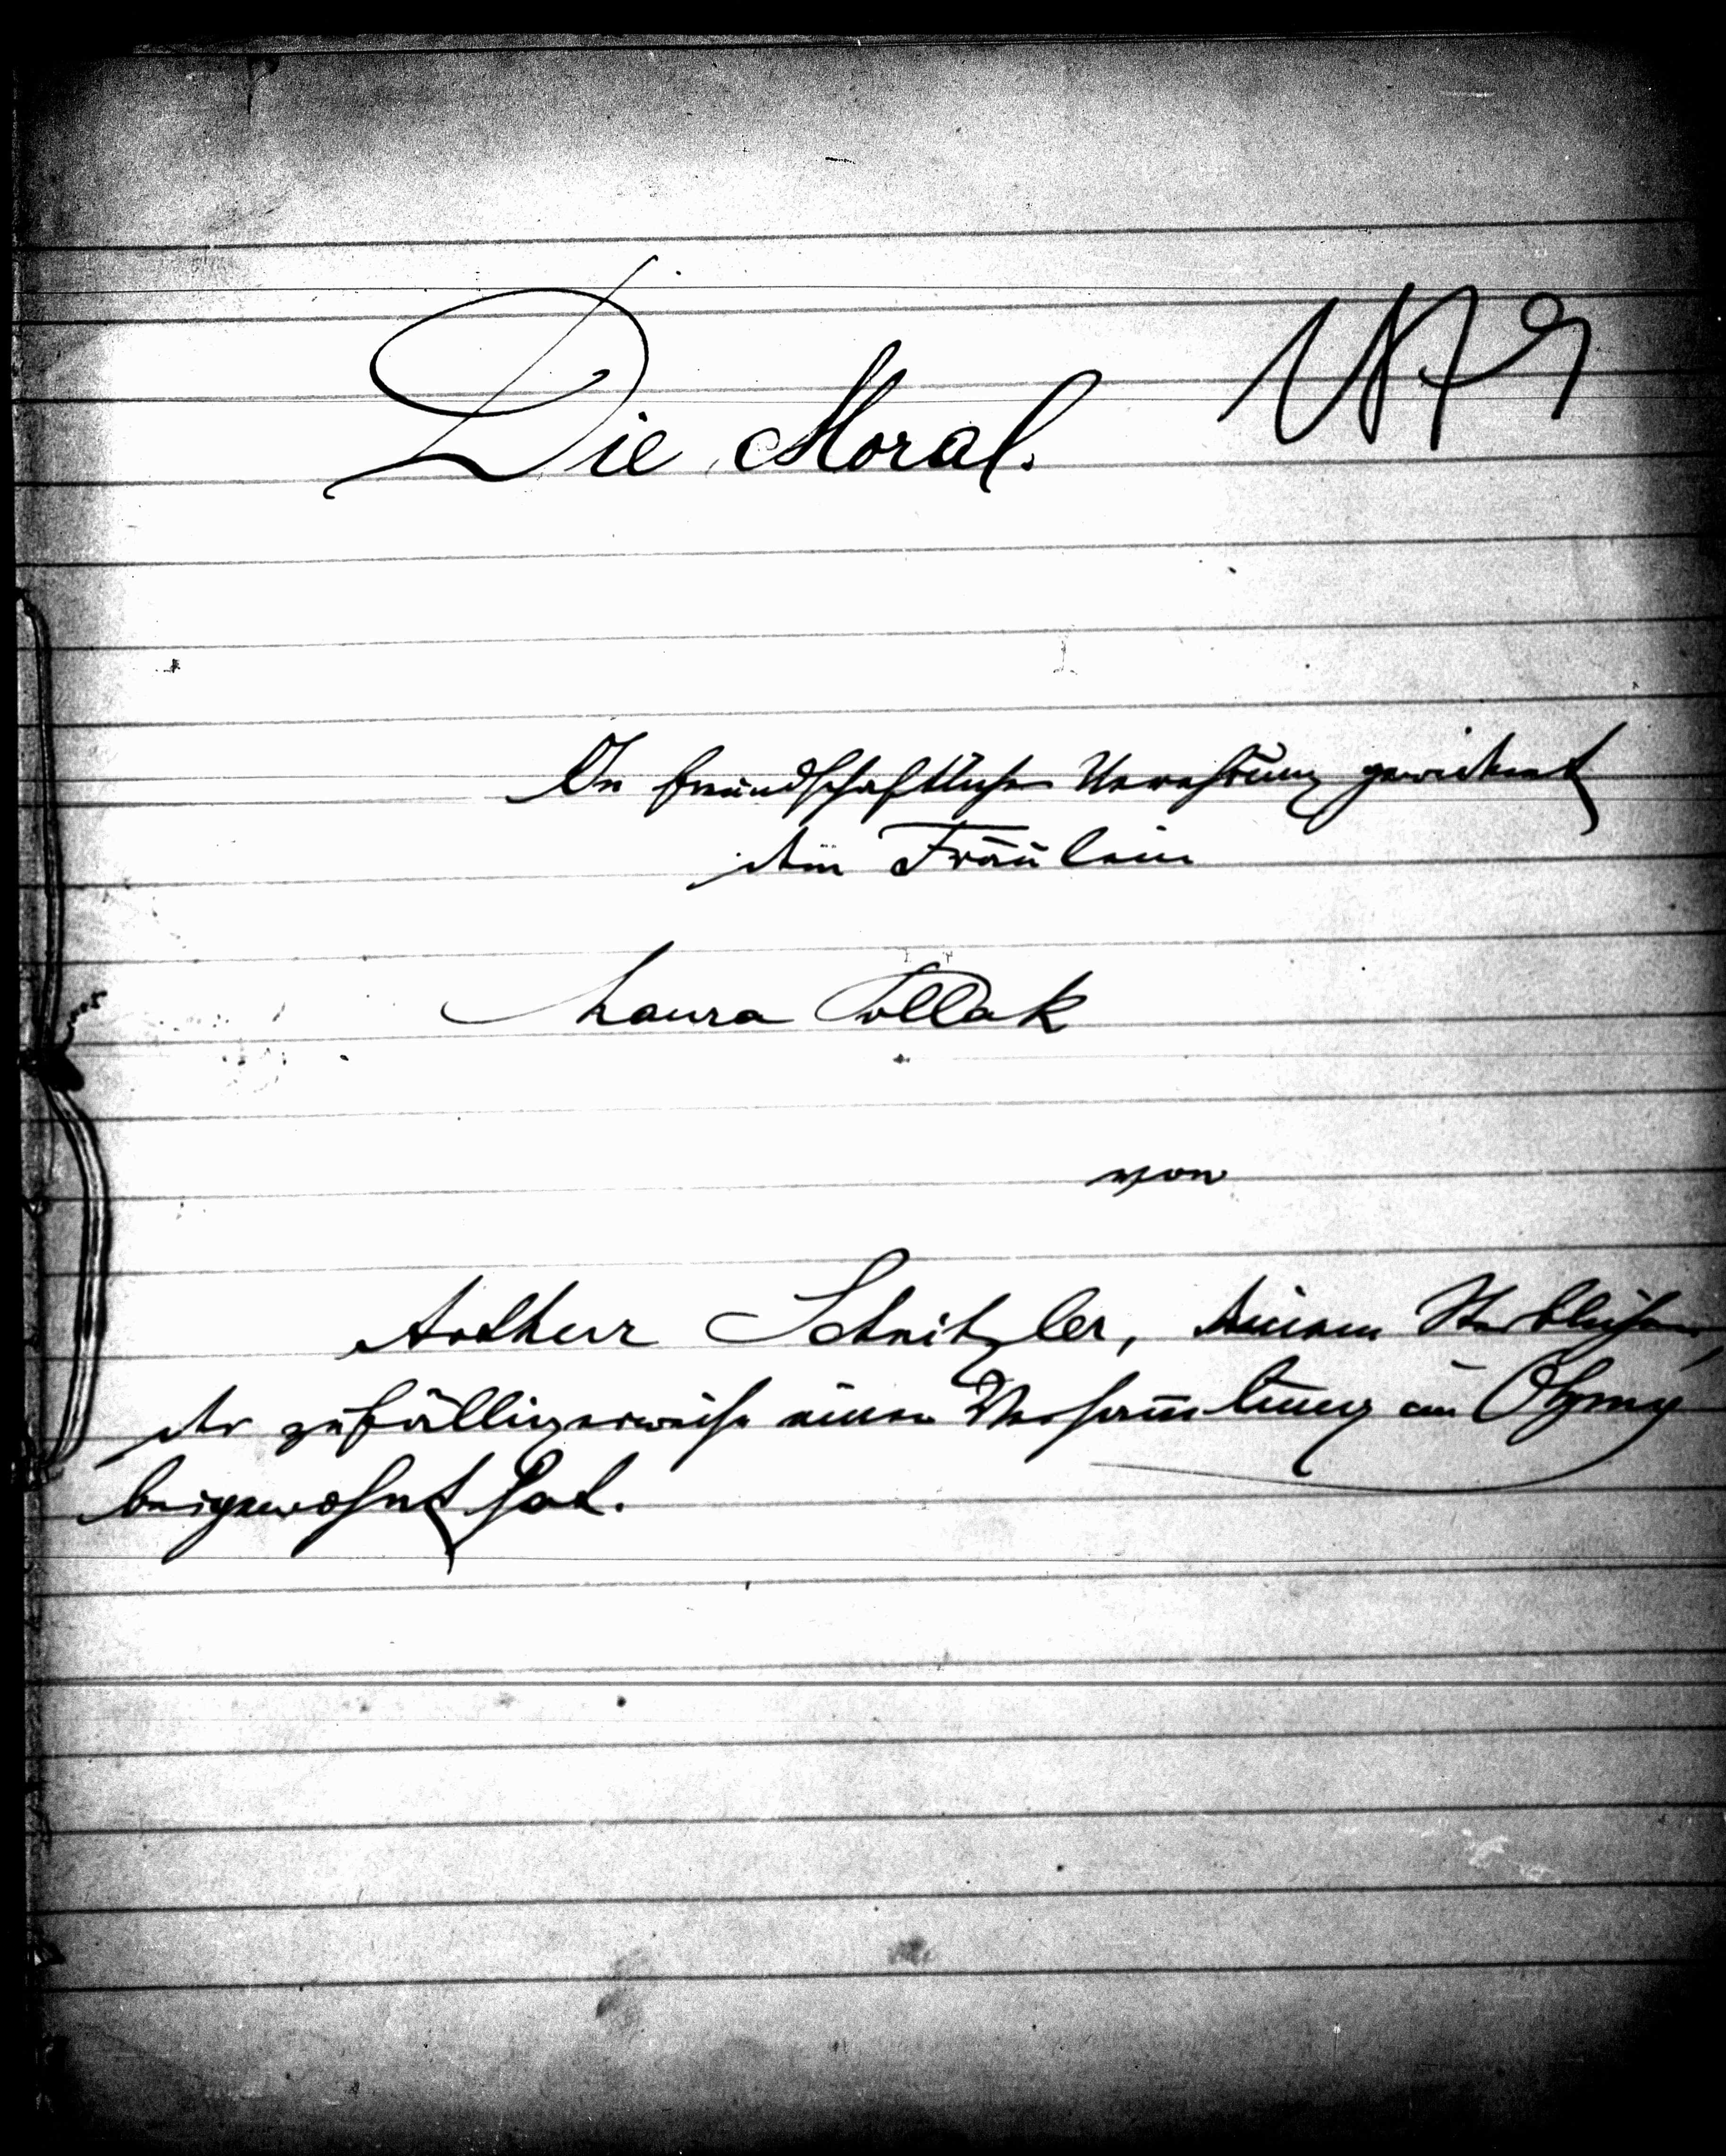 Die Moral.
1879
In freundschaftlicher Verehrung gewidmet
dem Fräulein
Laura Pollak
von
Arthur Schnitzler, einem Sterblichen,
der zufälligerweise einer Versam̅lung im Olymp
beigewohnt hat.